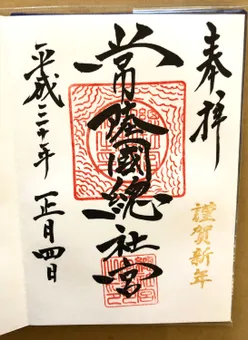 奉拝
謹賀新年
常陸國總社宮
平成三十年
正月四日